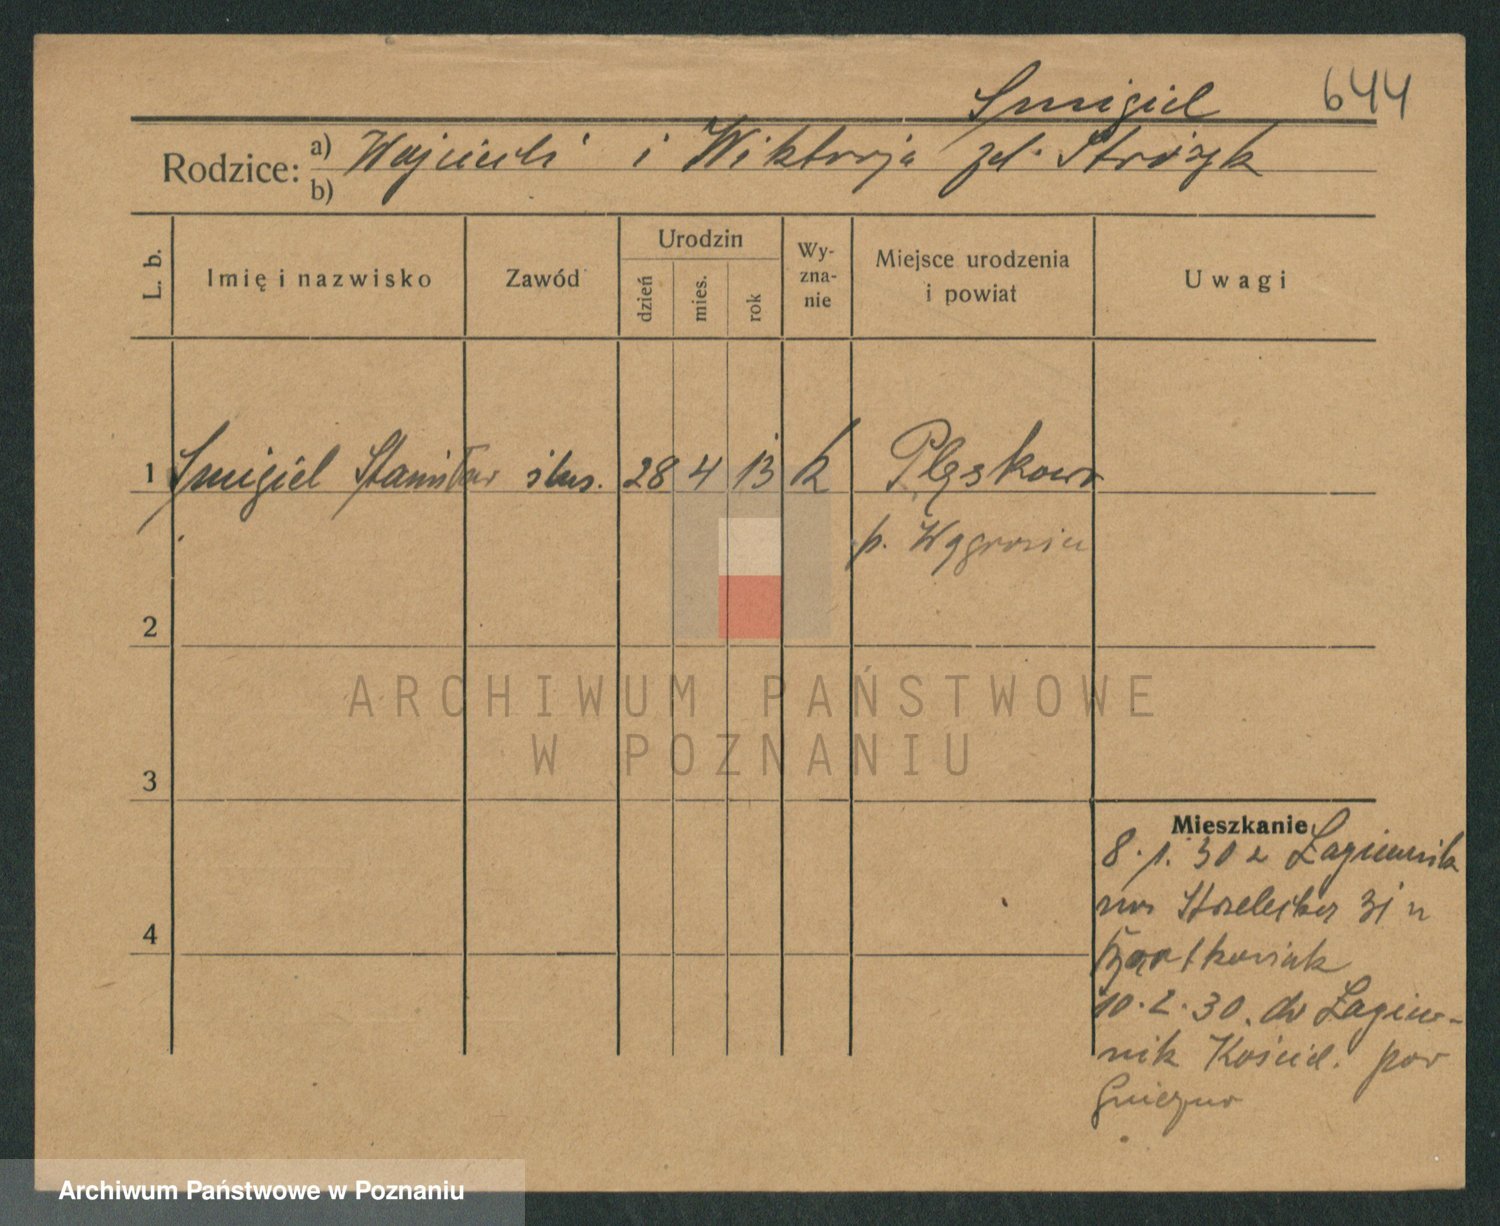 Smigiel 644
Rodzice: a) Wojciech i Wiktorja zd. Stróżyk
b)
L. b. Imię i nazwisko Zawód Urodzin dzień mies. rok Wy-zna-nie Miejsce urodzenia i powiat Uwagi
1 Smigiel Stanisław ślus. 28 4 13 k Pląskowo
p. Wągrowiec
2
ARCHIWUM PAŃSTWOWE
W POZNANIU
3
Mieszkanie
8. 1. 30 z Łagiewnik
na Strzelecka 31 u
10. 2. 30. do Łagiew-
nik Kościel. pow
Gniezno
4
Archiwum Państwowe w Poznaniu